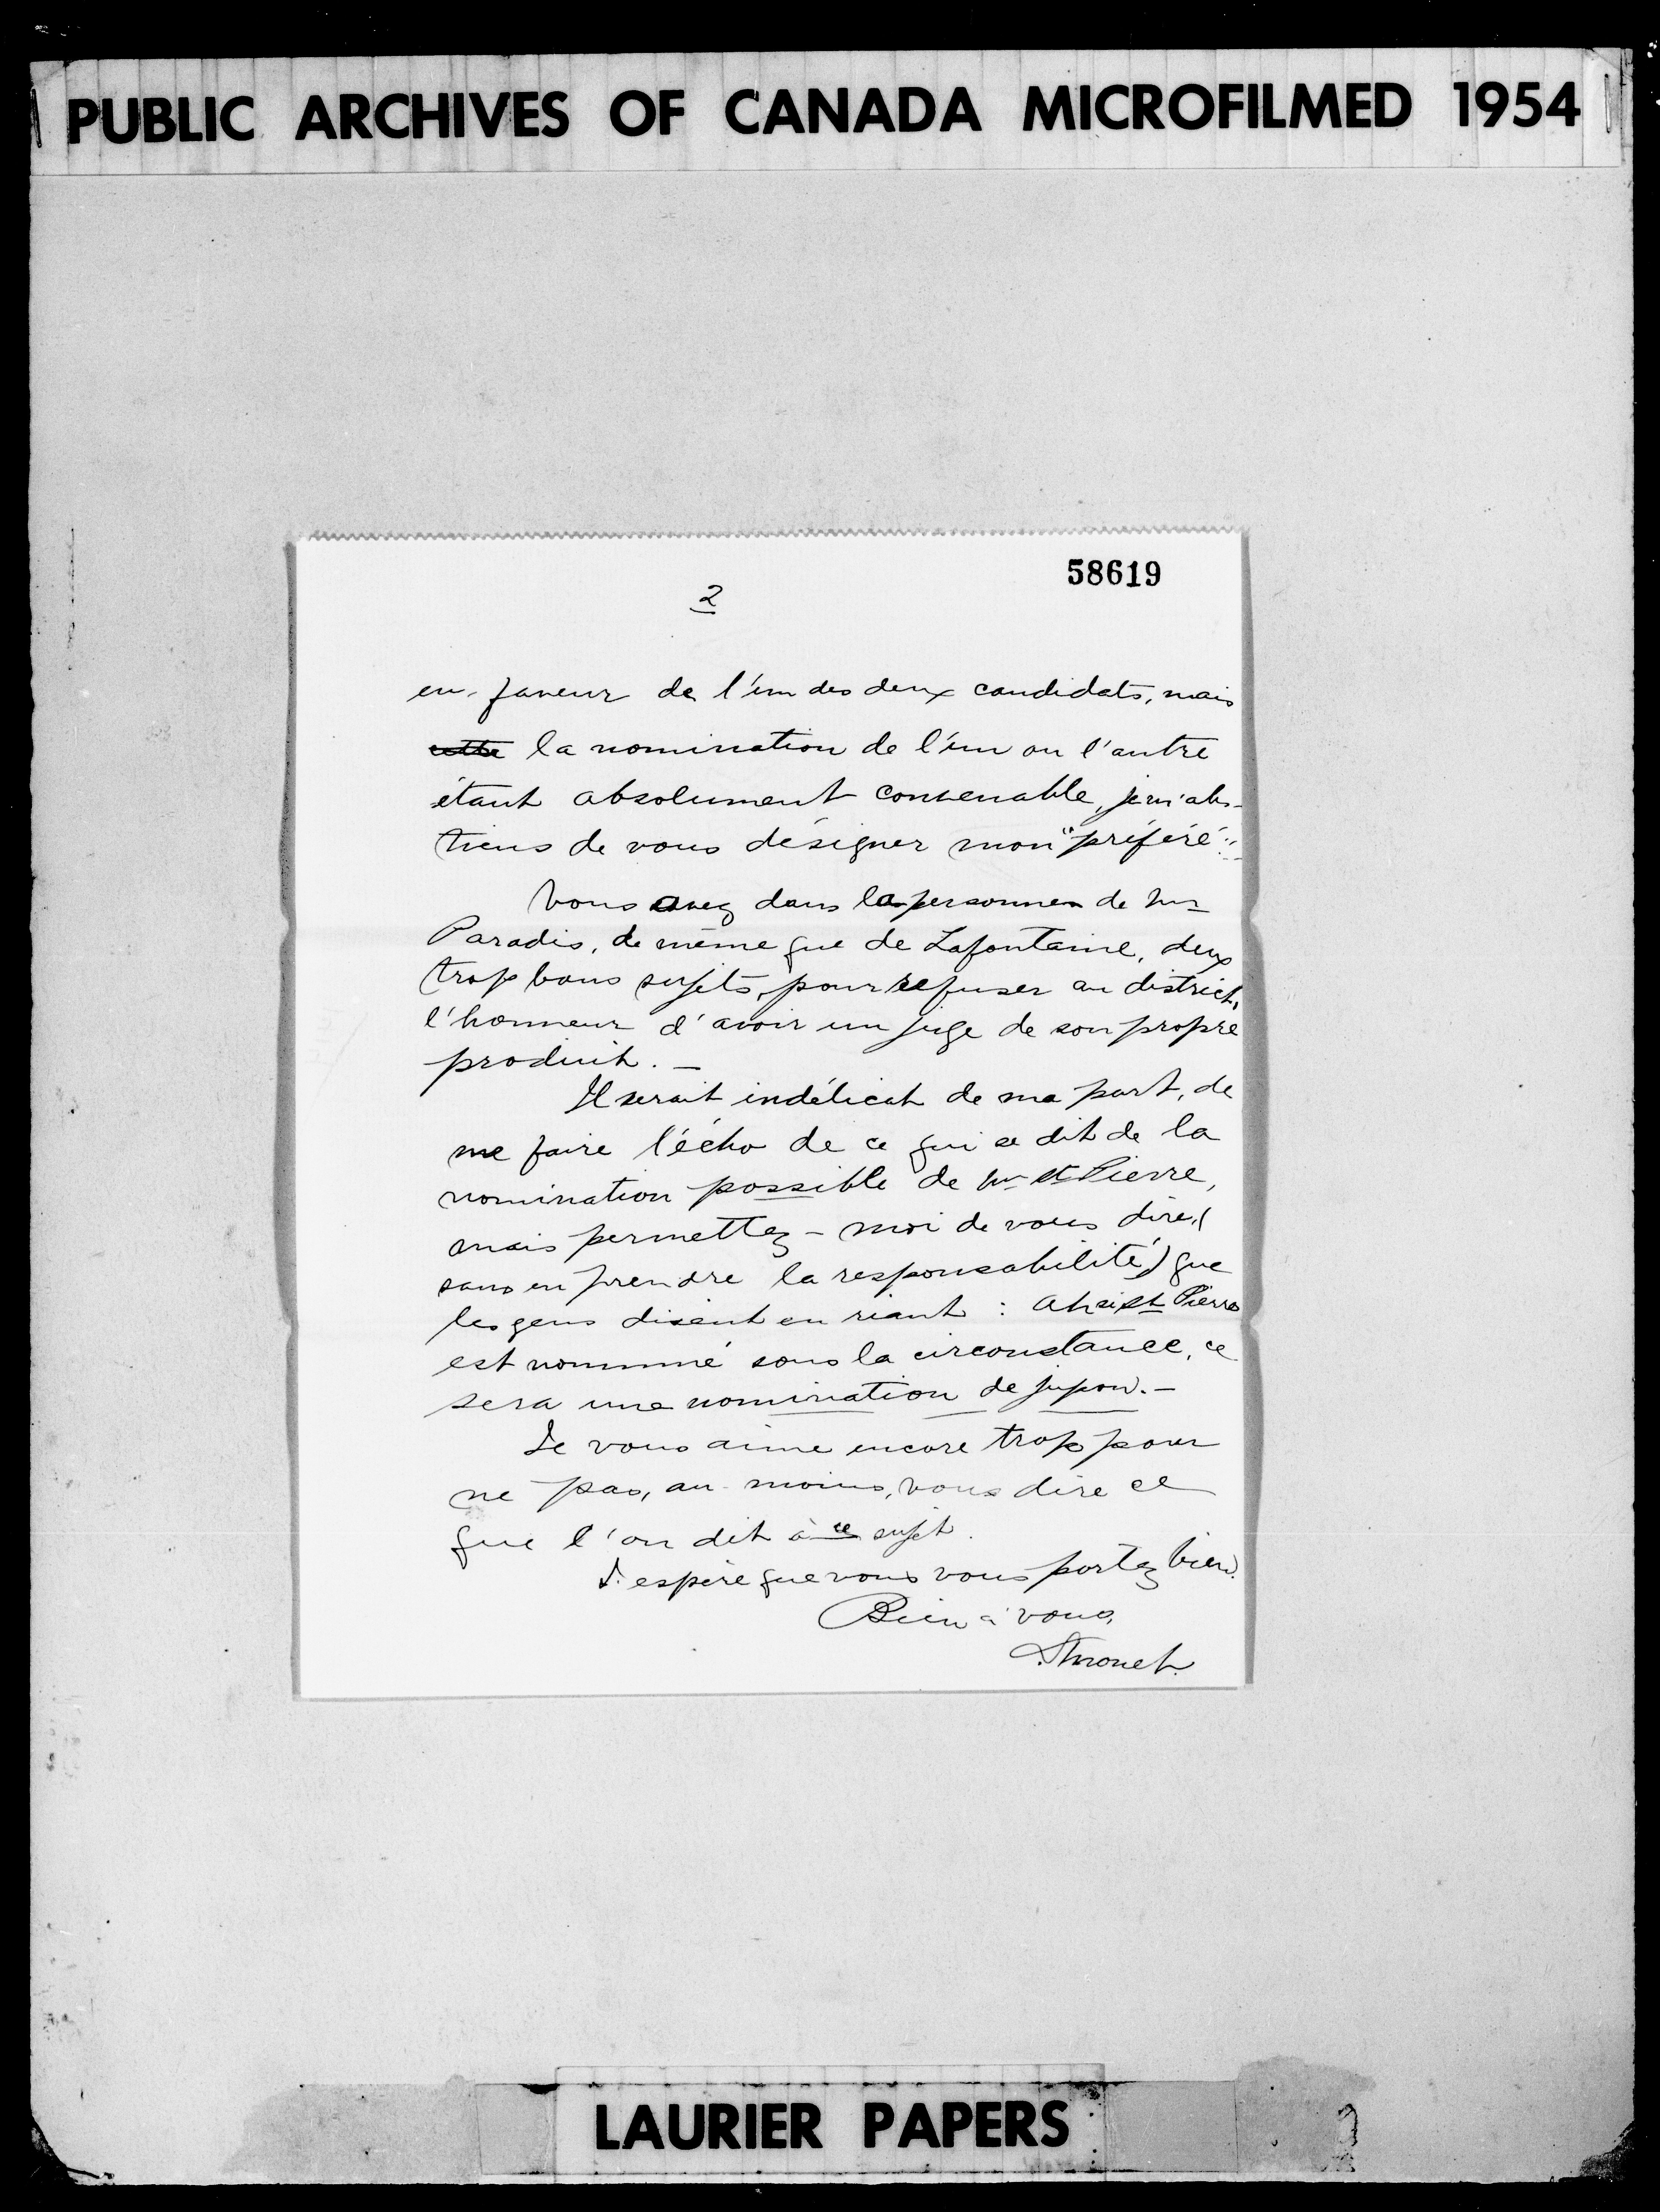 PUBLIC ARCHIVES OF CANADA MICROFILMED 1954
58619
2
en faveur de l'un des deux candidats, mais
cette la nomination de l'un ou l'autre
étant absolument convenable, je m'abs-
tiens de vous désigner mon "préféré".
Vous avez dans la personne de Mr
Paradis, de même que de Lafontaine, deux
trop bons sujets, pour refuser au district,
l'honneur d'avoir un juge de son propre
produit. —
Il serait indélicat de ma part, de
me faire l'écho de ce qui se dit de la
nomination possible de Mr St Pierre,
mais permettez-moi de vous dire, (
sans en prendre la responsabilité) que
les gens disent en riant : Ah si St Pierre
est nommé sous la circonstance, ce
sera une nomination de jupon. —
Je vous aime encore trop pour
ne pas, au moins, vous dire ce
que l'on dit à ce sujet.
J'espère que vous vous portez bien.
Bien à vous,
LAURIER PAPERS